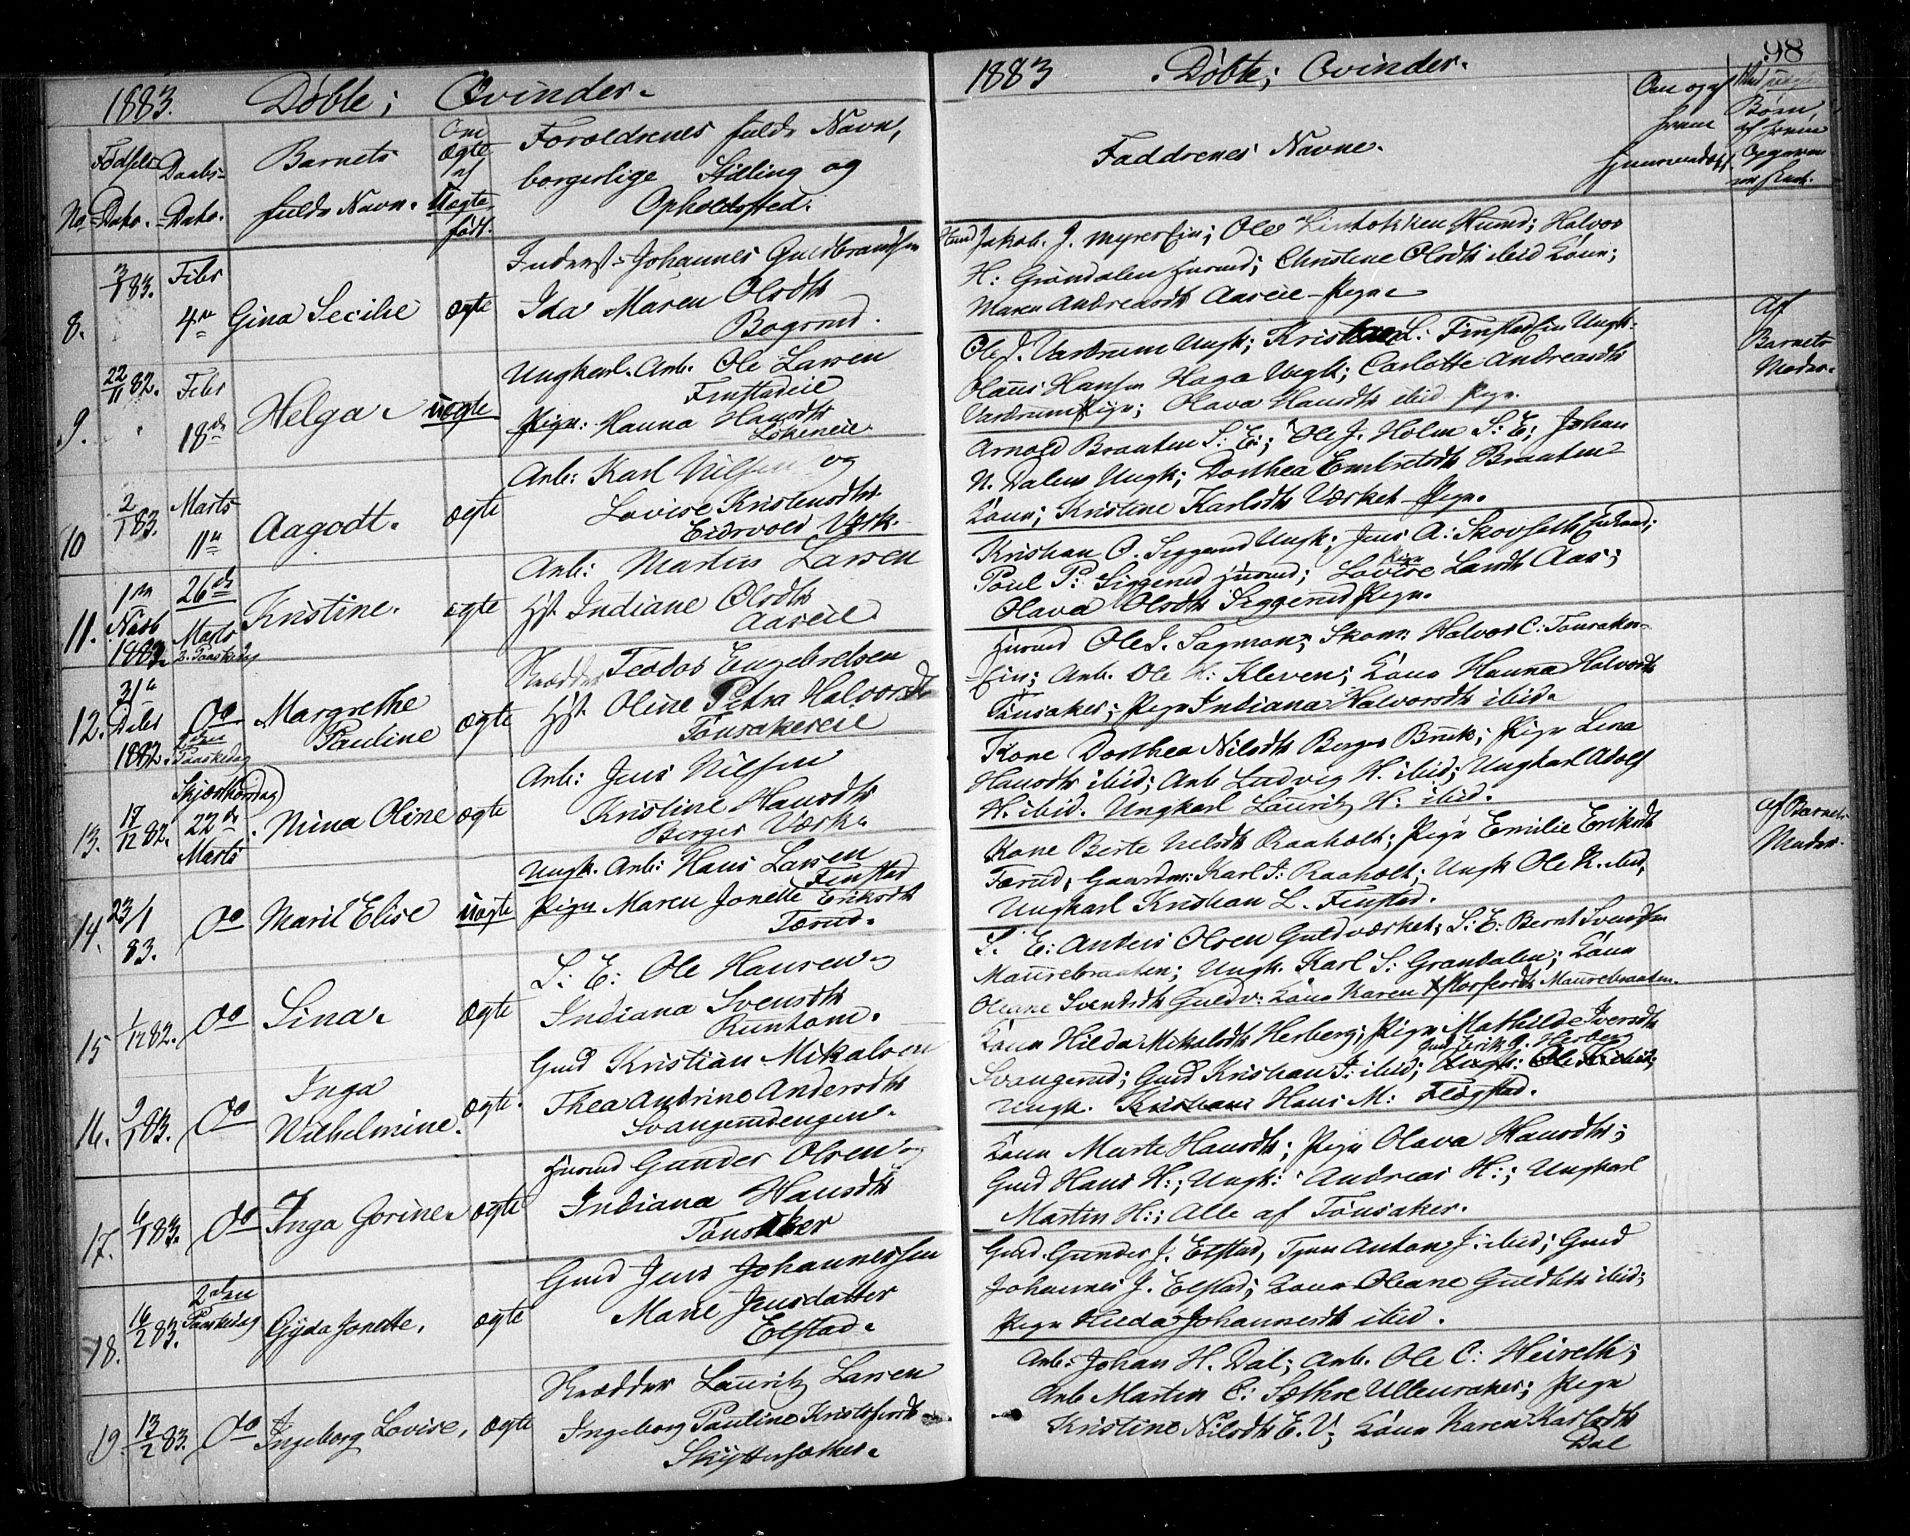 1883. Døbte; Qvinder.
No.
Fødsels-
Dato.
Daabs-
Dato.
Barnets
fulde Navn.
Om
Ægte
el
Uægte
født.
Forældrenes fulde Navn,
borgerlige Stilling og
Opholdssted.
8.
3/1 83.
Febr
4de
Gina Secilie
ægte
Inderst: Johannes Guldbrandsen
Ida Maren Olsdtr
Bogrud.
9.
22/11 82.
Febr
18de
Helga.
uægte
Ungkarl. Arb. Ole Larsen
Finstadeie
Pige: Hanna Hansdtr
10
2/1 83.
Marts
11te
Aagodt.
ægte
Arb: Karl Nilsen og
Lovise Kristensdtr
Eidsvold Værk.
11.
1ste
1883.
26de
Marts
2. Paaskedag
Kristine.
ægte
Arb: Martin Larsen
Hst. Indiane Olsdtr
Aaseie
12.
31te
Debr
1882.
Do
Paaskedag
Margrethe
Pauline
ægte
Skrædder Teodor Engebretsen
Hst. Oline Petra Halvorsdtr
Tønsakereie
13.
17/12 82.
Skjærthorsdag
22de
Marts
Nina Oline
ægte
Arb: Jens Nilsen
Kristine Hansdtr
Berger Værk.
14.
23/1
83.
Do
Maril Elise
uægte
Ungk. Arb: Hans Larsen
Finstad
Pige Maren Jonette Eriksdtr
Færud.
15
1/12 82.
Do
Sina.
Ægte
S: E: Ole Hansen og
Indiana Svensdtr
Runtom.
16.
9/1 83.
Do
Inga
Wilhelmine.
ægte.
Gmd Kristian Mikalsen
Thea Andrine Andersdtr
Svangerudengen.
17.
6/1 83.
Do
Inga Gorine.
ægte
Husmd Gunder Olsen og
Indiana Hansdtr
Tønsaker
18.
16/2 83.
2den
Paaskedag
Gyda Jonette.
ægte
Gmd Jens Johannessen
Marie Jensdatter
Elstad.
19.
13/2 83.
Do
Ingeborg Lovise.
ægte
Skrædder Lauritz Larsen
Ingeborg Pauline Kristofersdtr
1883 Døbte; Qvinder.
98
Faddrenes Navne.
Jakob. J. Myrer Ole Hund; Halvor
H: Grøndalen Husmd; Christine Olsdtr ibid Kone;
Maren Andreasdtr Aaseie Pige
Ole J. Ungk; L: Ungk.
Olaus Hansen Haga Ungk; Carlotte Andreasdtr
Pige; Olava Hansdtr ibid Pige.
Af
Barnets
Moder.
Arnold Braaten S: E:; Ole J. Holm S: E; Johan
N. Dalen Ungk; Dorthea Embretsdtr Braaten
Kone; Kristine Karlsdtr Værket Pige.
Kristian O. Siggerud Ungk; Jens A: Skovseth
Poul P: Siggerud Husmd; Pige Lovise Larsdtr Aas;
Olava Olsdtr Siggerud Pige.
Husmd Ole J. Sagmoen; Skom: Halvor C: Tønsaker-
Arb. Ole H: Kleven; Kone Hanna Halvorsdtr
Tønsaker; Pige Indiana Halvorsdtr ibid.
Kone Dorthea Nilsdtr Berger Brug; Pige Lina
Hansdtr ibid; Arb Ludvig H. ibid; Ungkarl Adolf
H. ibid. Ungkarl Lauritz H: ibid.
Kone Berte Nilsdtr Raaholt; Pige Emilie Eriksdtr
Færud; Gaardm: Karl J: Raaholt; Ungk Ole K. ibid,
Ungkarl Kristian L. Finstad.
af Barnets
Moder.
S. E: Anders Olsen Guldværket; S: E: Bernt Svendsen
Maurebraaten; Ungk. Karl S: Grandalen; Kone
Oleane Svendsdtr Guldv. Kone Karen Maurebraaten.
Kone Hilda Mikalsdtr Herberg; Pige Mathilde Iversdtr
Gmd Erik J: Herberg
Svangerud; Gmd Kristian J: ibid;
Ungk. Hans M: Fløgstad.
Kone Marte Hansdtr; Pige Olava Hansdtr;
Gmd Hans H:; Ungk: Andreas H:; Ungkarl
Martin H:; Alle af Tønsaker.
Gmd. Gunder J. Elstad, Tjen Anton J: ibid; Gmd
Johannes J. Elstad; Kone Oleane Guldbdtr ibid;
Pige Hilda Johannesdtr ibid.
Arb: Johan H. Dal; Arb. Ole C:
Arb Martin C: Sæthre Ullensaker; Pige
Kristine Nilsdtr E. V; Kone Karen Karlsdtr
Dal